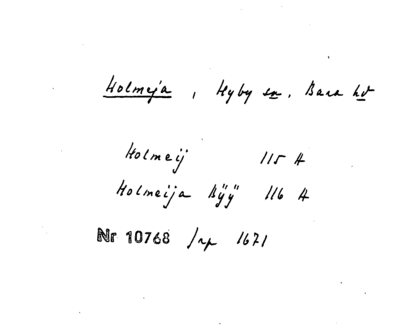 Holmeja, Hyby sn, Bara hd
Holmeij 115 A
Holmeija Bÿÿ 116 A
Nr 10768 1671